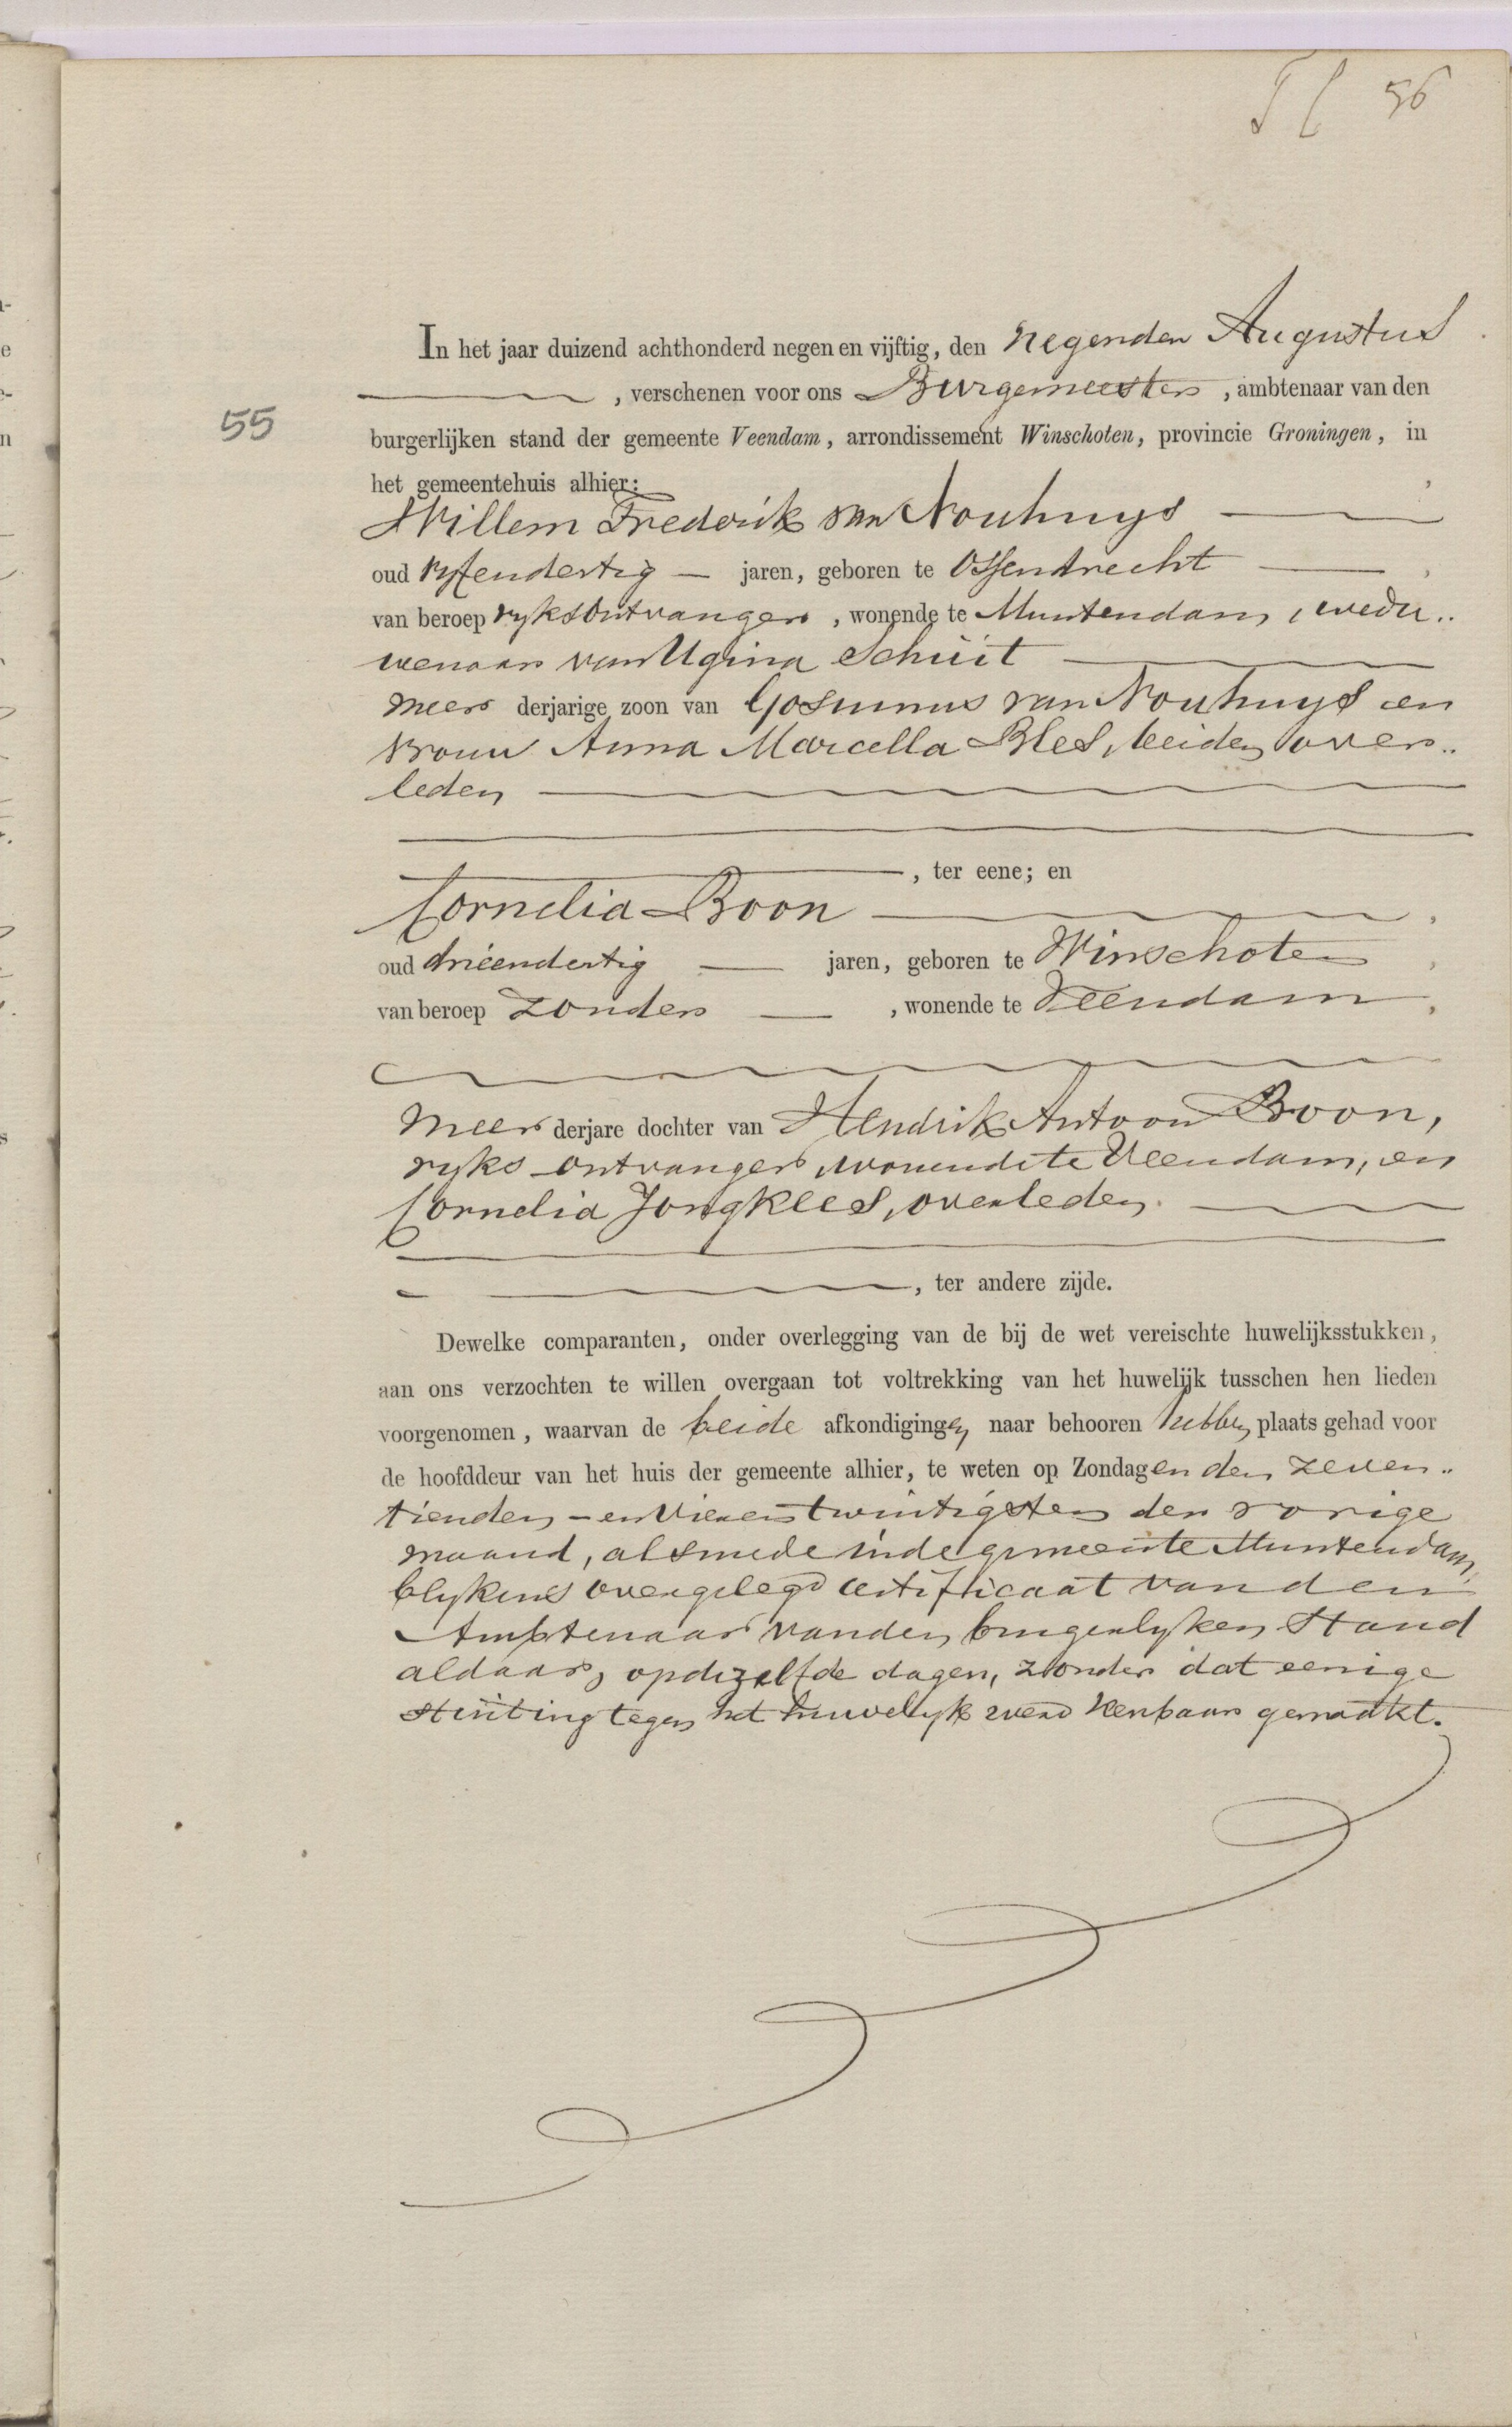 56
In het jaar duizend achthonderd negen en vijftig, den negenden Augustus
, verschenen voor ons Burgemeester, ambtenaar van den
55
burgerlijken stand der gemeente Veendam, arrondissement Winschoten, provincie Groningen, in
het gemeentehuis alhier:
Willem Frederik van Nouhuys
oud vyfendertig jaren, geboren te Ossendrecht,
van beroep ryksontvanger, wonende te Muntendam, wedu..
wenaar van Ugina Schuit
meer derjarige zoon van Gosuinus van Nouhuys en
vrouw Anna Marcella Bles, beiden over..
leden
, ter eene; en
Cornelia Boon,
oud drieendertig jaren, geboren te Winschoten,
van beroep zonder, wonende te Veendam,
meer derjare dochter van Hendrik Antoon Boon,
ryks ontvanger, wonende te Veendam, en
Cornelia Jongklees, overleden.
, ter andere zijde.
Dewelke comparanten, onder overlegging van de bij de wet vereischte huwelijksstukken,
aan ons verzochten te willen overgaan tot voltrekking van het huwelijk tusschen hen lieden
voorgenomen, waarvan de beide afkondigingen naar behooren hebben plaats gehad voor
de hoofddeur van het huis der gemeente alhier, te weten op Zondagen den zeven..
tienden - en vierentwintigsten der vorige
maand, alsmede in de gemeente Muntendam,
blykens overgelegd certificaat van den
Amptenaar van den burgerlyken Stand
aldaar, op dezelfde dagen, zonder dat eenige
stuiting tegen het huwelyk werd kenbaar gemaakt.